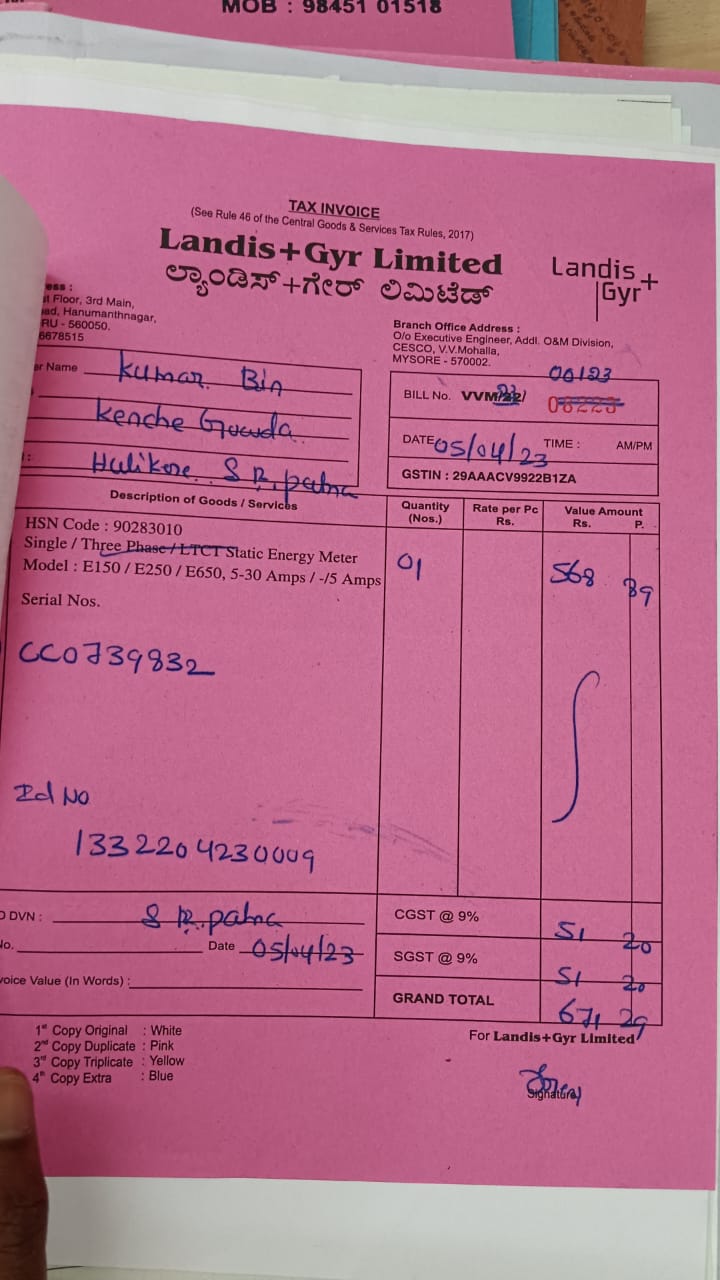 MOB : 98451 01518
TAX INVOICE
(See Rule 46 of the Central Goods & Services Tax Rules, 2017)
Landis+Gyr Limited
ಲ್ಯಾಂಡಿಸ್+ಗೇರ್ ಲಿಮಿಟೆಡ್
Landis+
Gyr
ess :
t Floor, 3rd Main,
ad, Hanumanthnagar,
RU - 560050.
6678515
Branch Office Address :
O/o Executive Engineer, Addl. O&M Division,
CESCO, V.V.Mohalla,
MYSORE - 570002.
er Name Kumar Bin
Kenche Gowda
Halikere S R. patna
00123
BILL No. VVM/22/
DATE 05/04/23 TIME : AM/PM
GSTIN : 29AAACV9922B1ZA
Description of Goods / Services Quantity (Nos.) Rate per Pc Rs. Value Amount Rs. P.
HSN Code : 90283010
Single / Three Phase / LTCT Static Energy Meter
Model : E150 / E250 / E650, 5-30 Amps / -/5 Amps 01 568 89
Serial Nos.
CC0739832
Id No
1332204230009
O DVN : S R. patna
CGST @ 9% 51 20
No. Date 05/04/23
SGST @ 9% 51 20
voice Value (In Words) :
GRAND TOTAL 671 29
For Landis+Gyr Limited
1st Copy Original : White
2nd Copy Duplicate : Pink
3rd Copy Triplicate : Yellow
4th Copy Extra : Blue
Signature